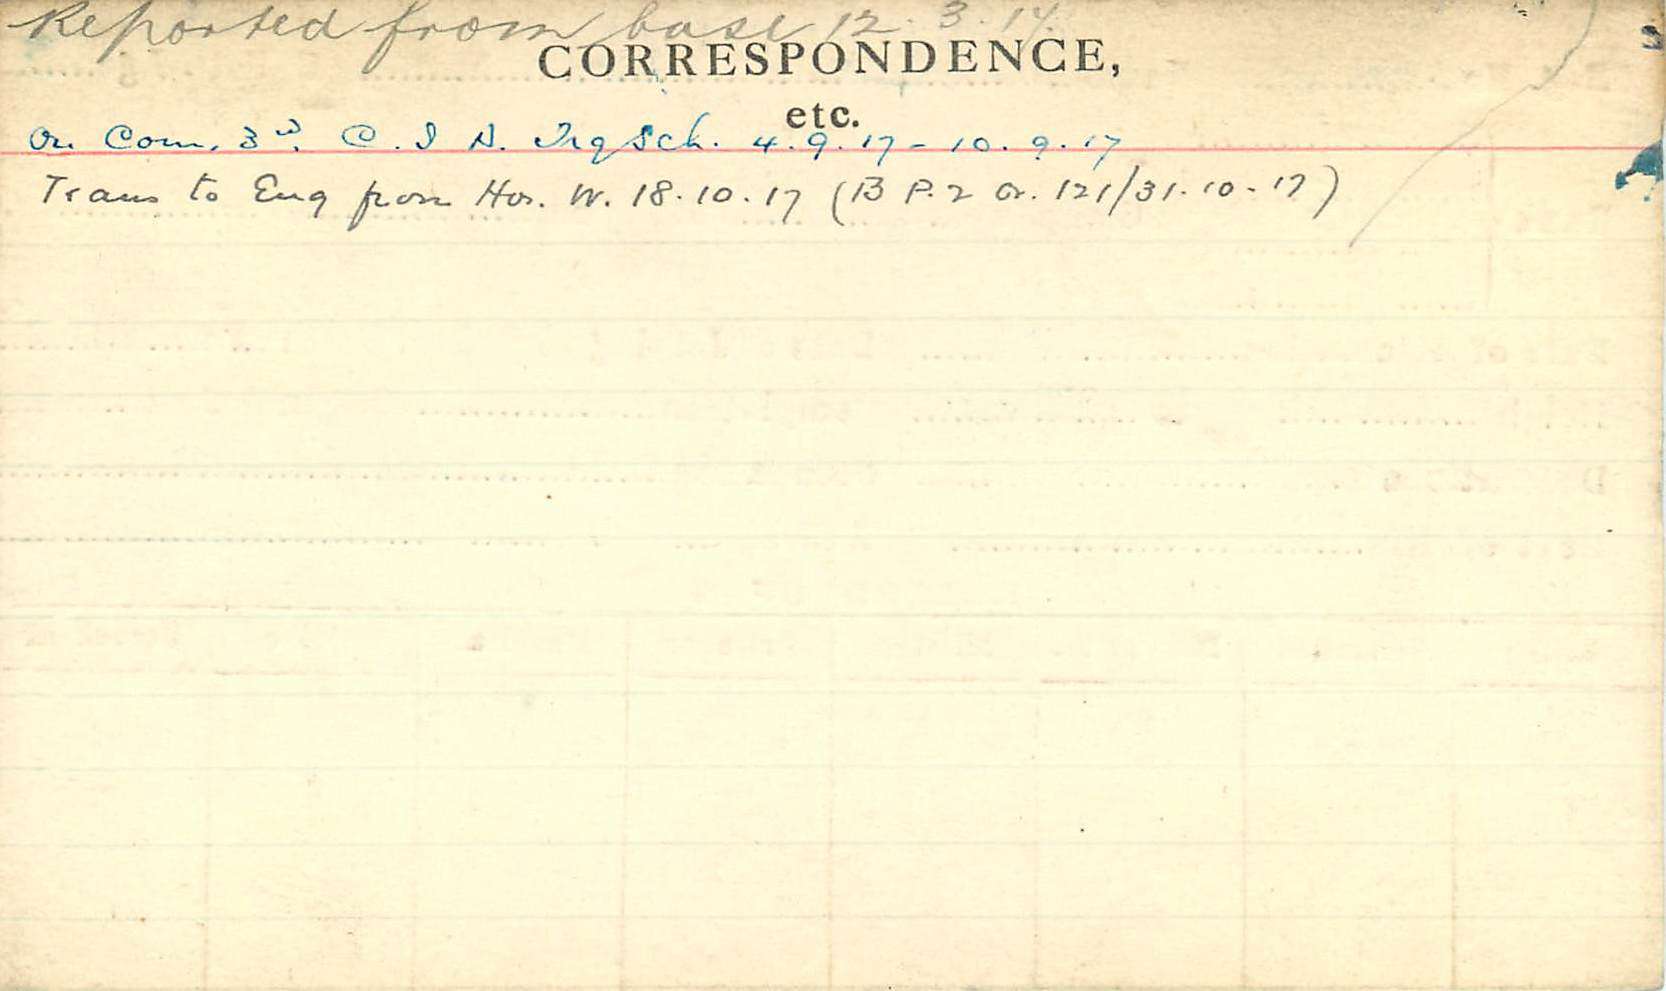 Reported from base 12.3.17.
CORRESPONDENCE,
etc.
On Com. 3rd. C. I. D. Trg Sch. 4.9.17 - 10.9.17
Trans to Eng from Hos. W. 18.10.17 (B P.2 Or. 121/31.10.17)